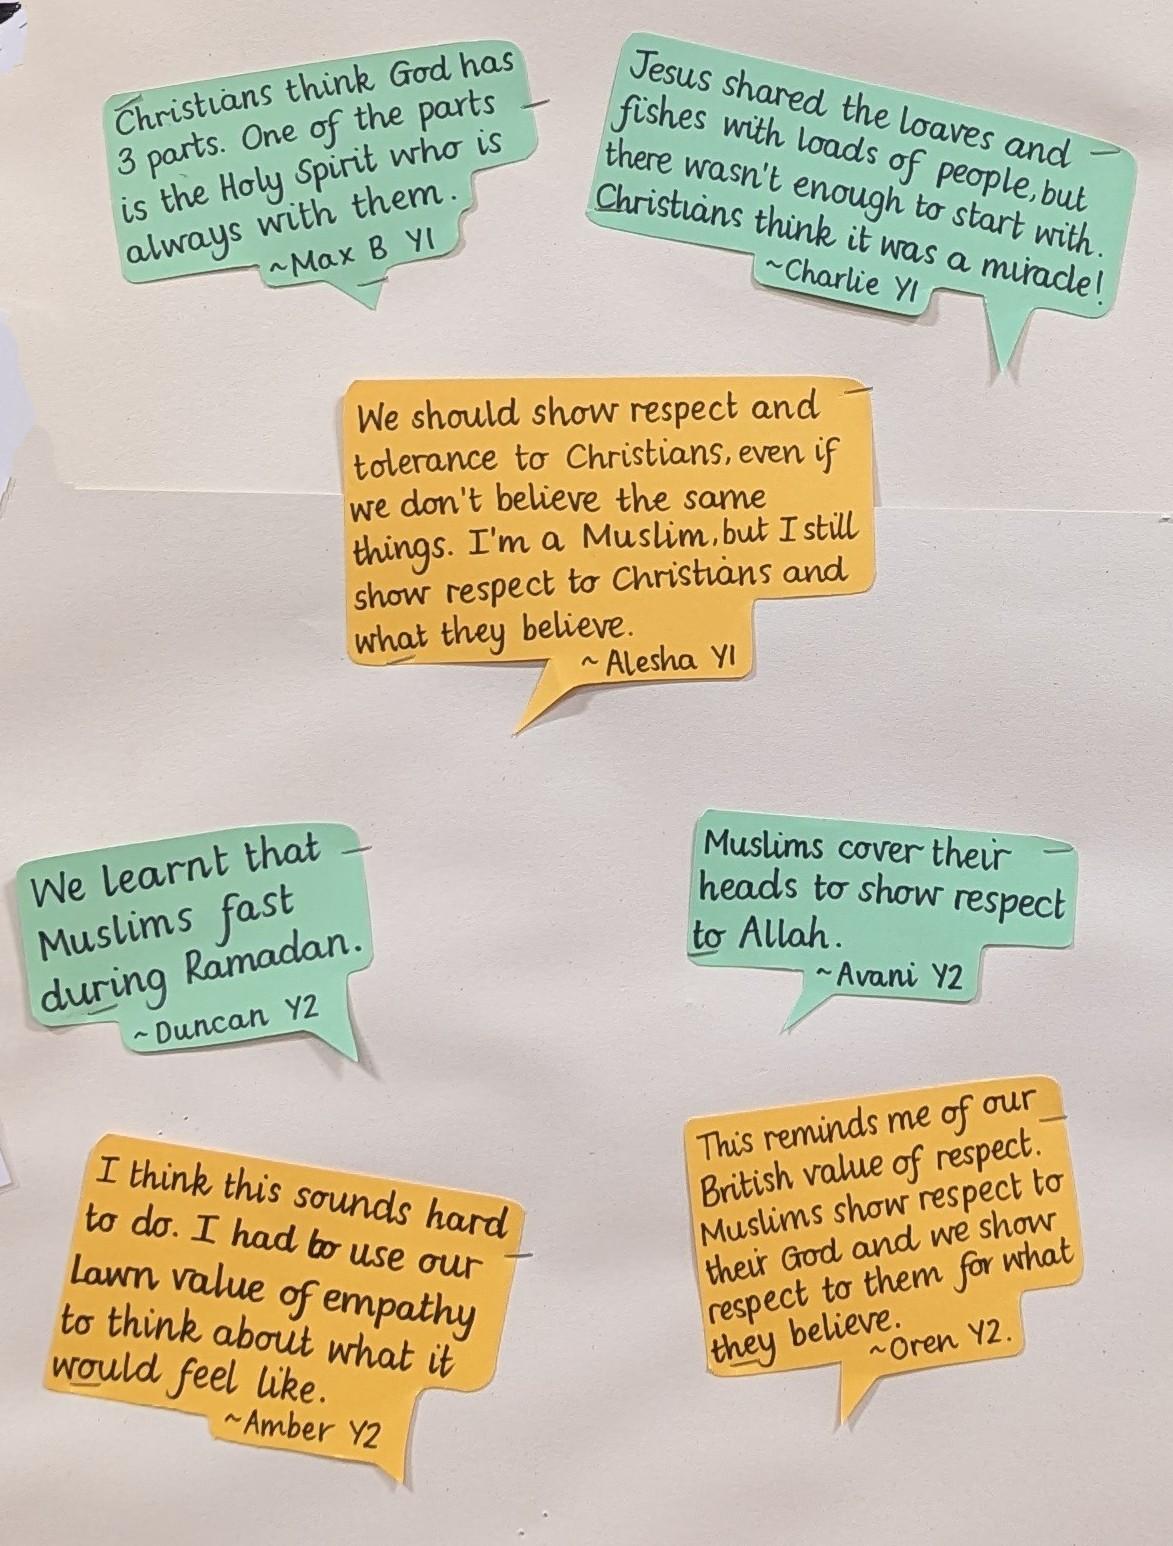 Christians think God has
3 parts. One of the parts
is the Holy Spirit who is
always with them.
~Max B Y1
Jesus shared the loaves and
fishes with loads of people, but
there wasn't enough to start with.
Christians think it was a miracle!
~Charlie Y1
We should show respect and
tolerance to Christians, even if
we don't believe the same
things. I'm a Muslim, but I still
show respect to Christians and
what they believe.
~ Alesha Y1
We learnt that
Muslims fast
during Ramadan.
~Duncan Y2
Muslims cover their
heads to show respect
to Allah.
~Avani Y2
I think this sounds hard
to do. I had to use our
Lawn value of empathy
to think about what it
would feel like.
~Amber Y2
This reminds me of our
British value of respect.
Muslims show respect to
their God and we show
respect to them for what
they believe.
~Oren Y2.